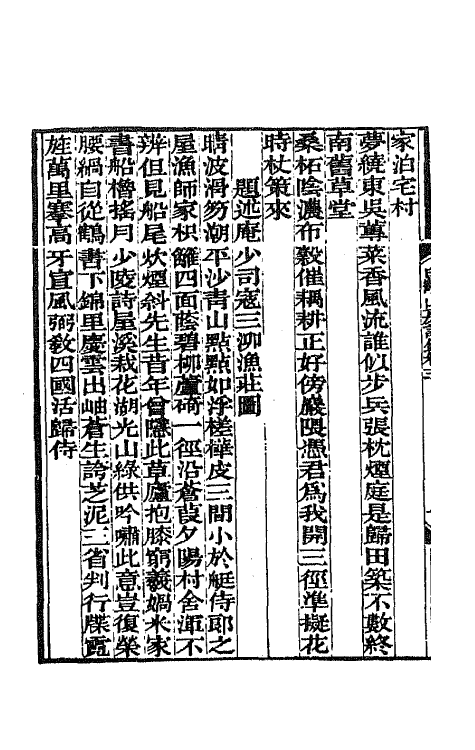 家泊宅村
夢繞東吳蓴菜香風流誰似步兵張枕煙庭是歸田築不數終
南舊草堂
桑柘陰濃布穀催耦耕正好傍巖隈憑君爲我開三徑準擬花
時杖策來
題述庵少司寇三泖漁莊圖
晴波滑笏潮平沙靑山點點如浮槎樺皮三間小於艇侍郎之
屋漁師家枳籬四面蔭碧柳蘆碕一徑沿蒼葭夕陽村舍渾不
辨但見船尾炊煙斜先生昔年曾隱此草廬抱膝窮羲媧米家
書船櫓搖月少陵詩屋溪栽花湖光山綠供吟嘯此意豈復榮
腰緺自從鶴書下錦里慶雲出岫蒼生誇芝泥三省判行牒霓
旌萬里搴高牙宣風弼敎四國活歸侍